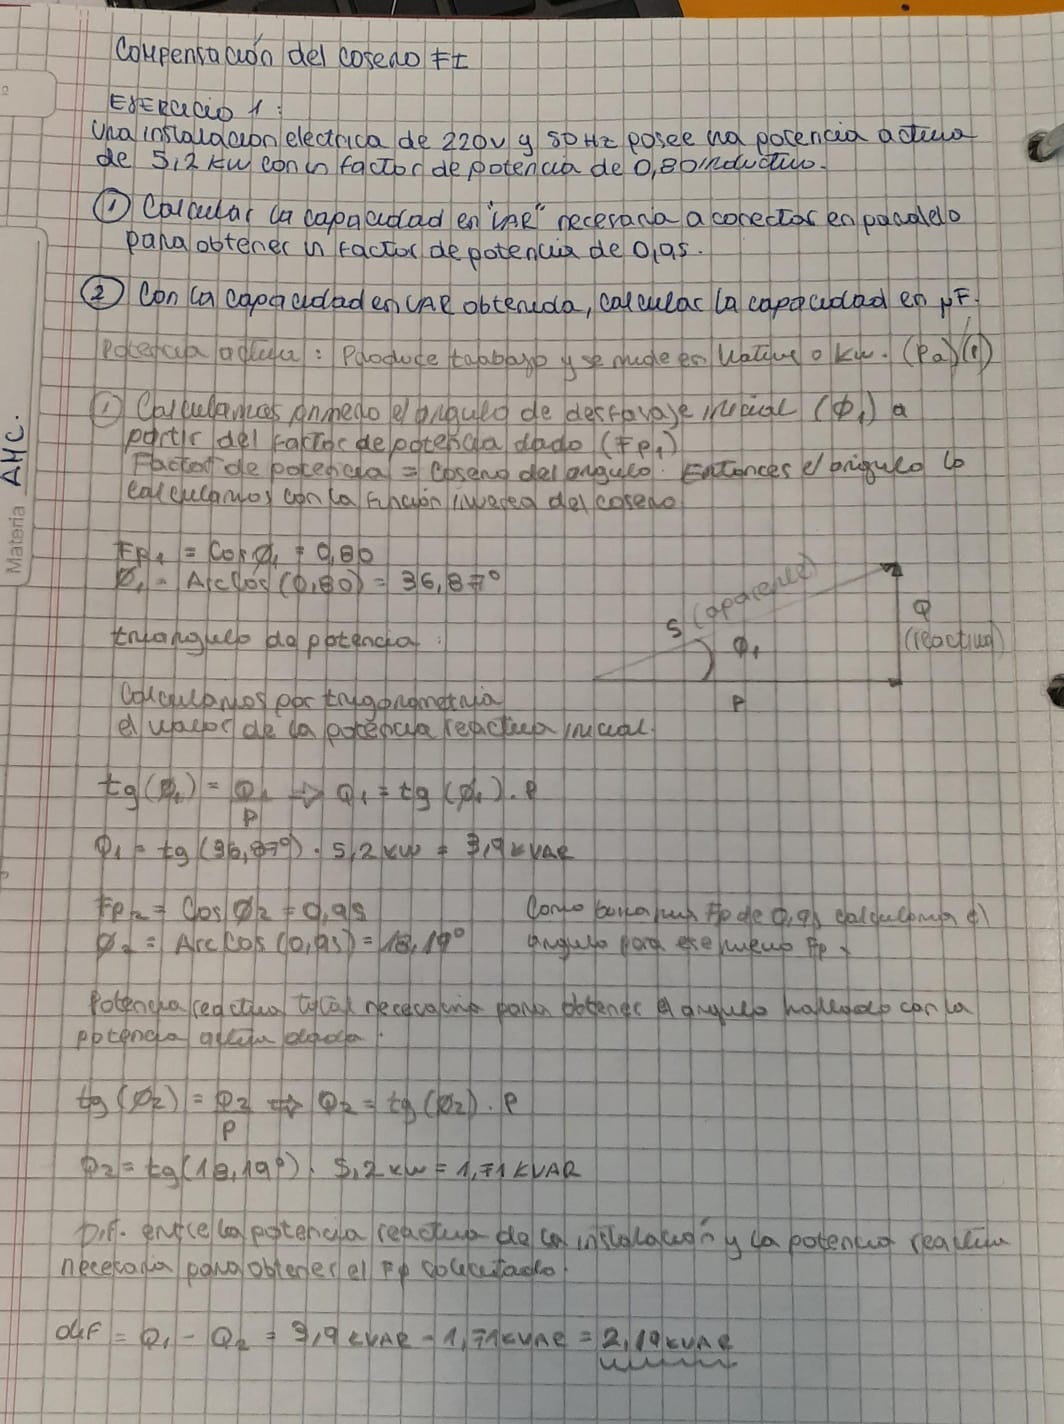 Compensación del coseno FI
Ejercicio 1:
Una instalacion eléctrica de 220V y 50Hz posee una potencia activa
de 5,2 KW con un factor de potencia de 0,80 inductivo.
① Calcular la capacidad en "VAR" necesaria a conectar en paralelo
para obtener un factor de potencia de 0,95.
② Con la capacidad en VAR obtenida, calcular la capacidad en µF.
Potencia activa: Produce trabajo y se mide en Watios o Kw. (Pa)
① Calculamos primero el angulo de desfavaje inicial (Φ₁) a
partir del factor de potencia dado (Fp₁)
Factor de potencia = Coseno del angulo. Entonces el angulo lo
calculamos con la función inversa del coseno
Fp₁ = Cos Φ₁ = 0,80
Φ₁ = ArcCos (0,80) = 36,87°
S (aparente)
Q
(reactiva)
Φ₁
P
triangulo de potencia:
Calculamos por trigonometria
el valor de la potencia reactiva inicial.
tg(Φ₁) = Q₁ ⇒ Q₁ = tg (Φ₁) . P
P
Q₁ = tg (36,87°) . 5,2 KW = 3,9 KVAR
Fp₂ = Cos Φ₂ = 0,95
Φ₂ = ArcCos (0,95) = 18,19°
Como Fp de 0,95 calculamos el
angulo para ese nuevo Fp.
Potencia reactiva total necesaria para obtener el angulo hallado con la
potencia activa dada.
tg (Φ₂) = Q₂ ⇒ Q₂ = tg (Φ₂) . P
P
Q₂ = tg (18,19°) . 5,2 KW = 1,71 KVAR
Dif. entre la potencia reactiva de la instalación y la potencia reactiva
necesaria para obtener el Fp solicitado.
dif = Q₁ - Q₂ = 3,9 KVAR - 1,71 KVAR = 2,19 KVAR
Materia AHC.